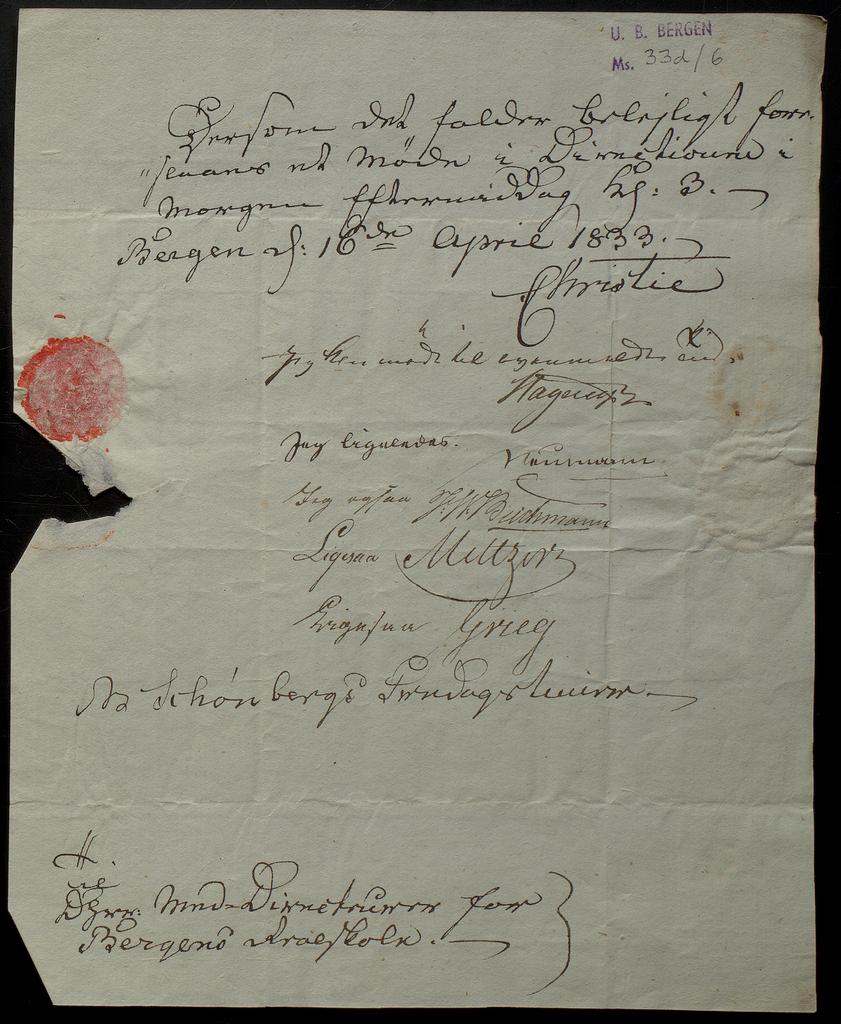 U. B. BERGEN
Ms. 33d/6
Dersom det falder belejligt fore-
"slaaes et Møde i Directionen i
Morgen Eftermiddag Kl: 3.
Bergen d: 16de April 1833.
Christie
Jeg kan møde til ovenmeldte Tid.
Hagerup
Jeg ligeledes. Neumann
Jeg ogsaa Buchmann
Ligesaa Meltzer
Ligesaa Grieg
Schønbergs
H.
Dhrr. Med-Directeurer for
Bergens Realskole.